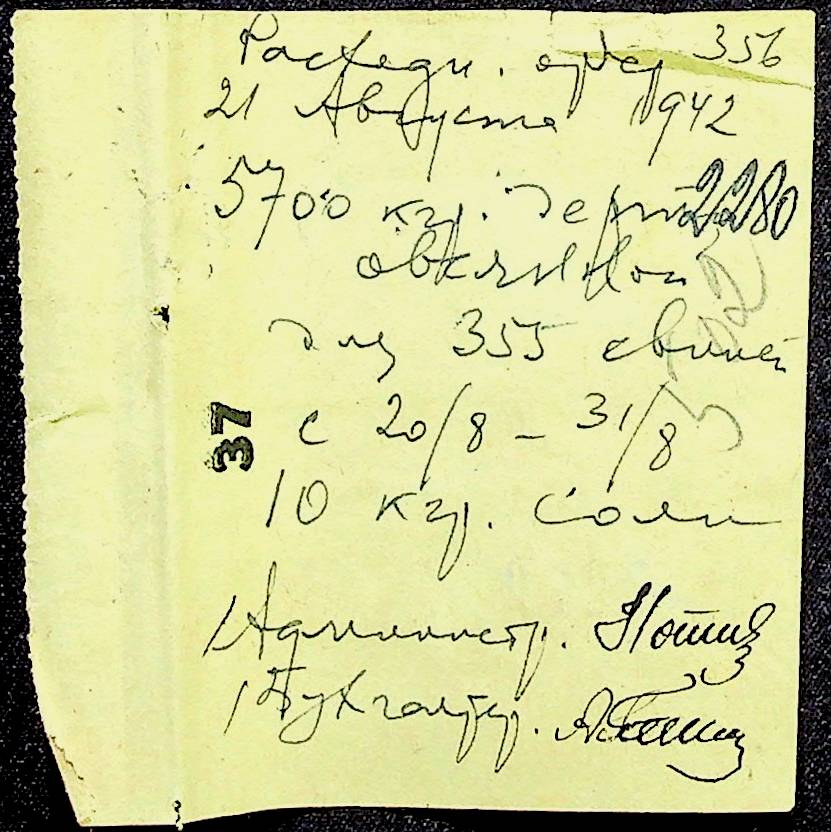 Расходн. ордер 356
21 Августа 1942
5700 кгр. 2280
для 355 свиней
с 20/8 – 31/8
37
10 кгр. соли
Администр.
Бухгалтер.